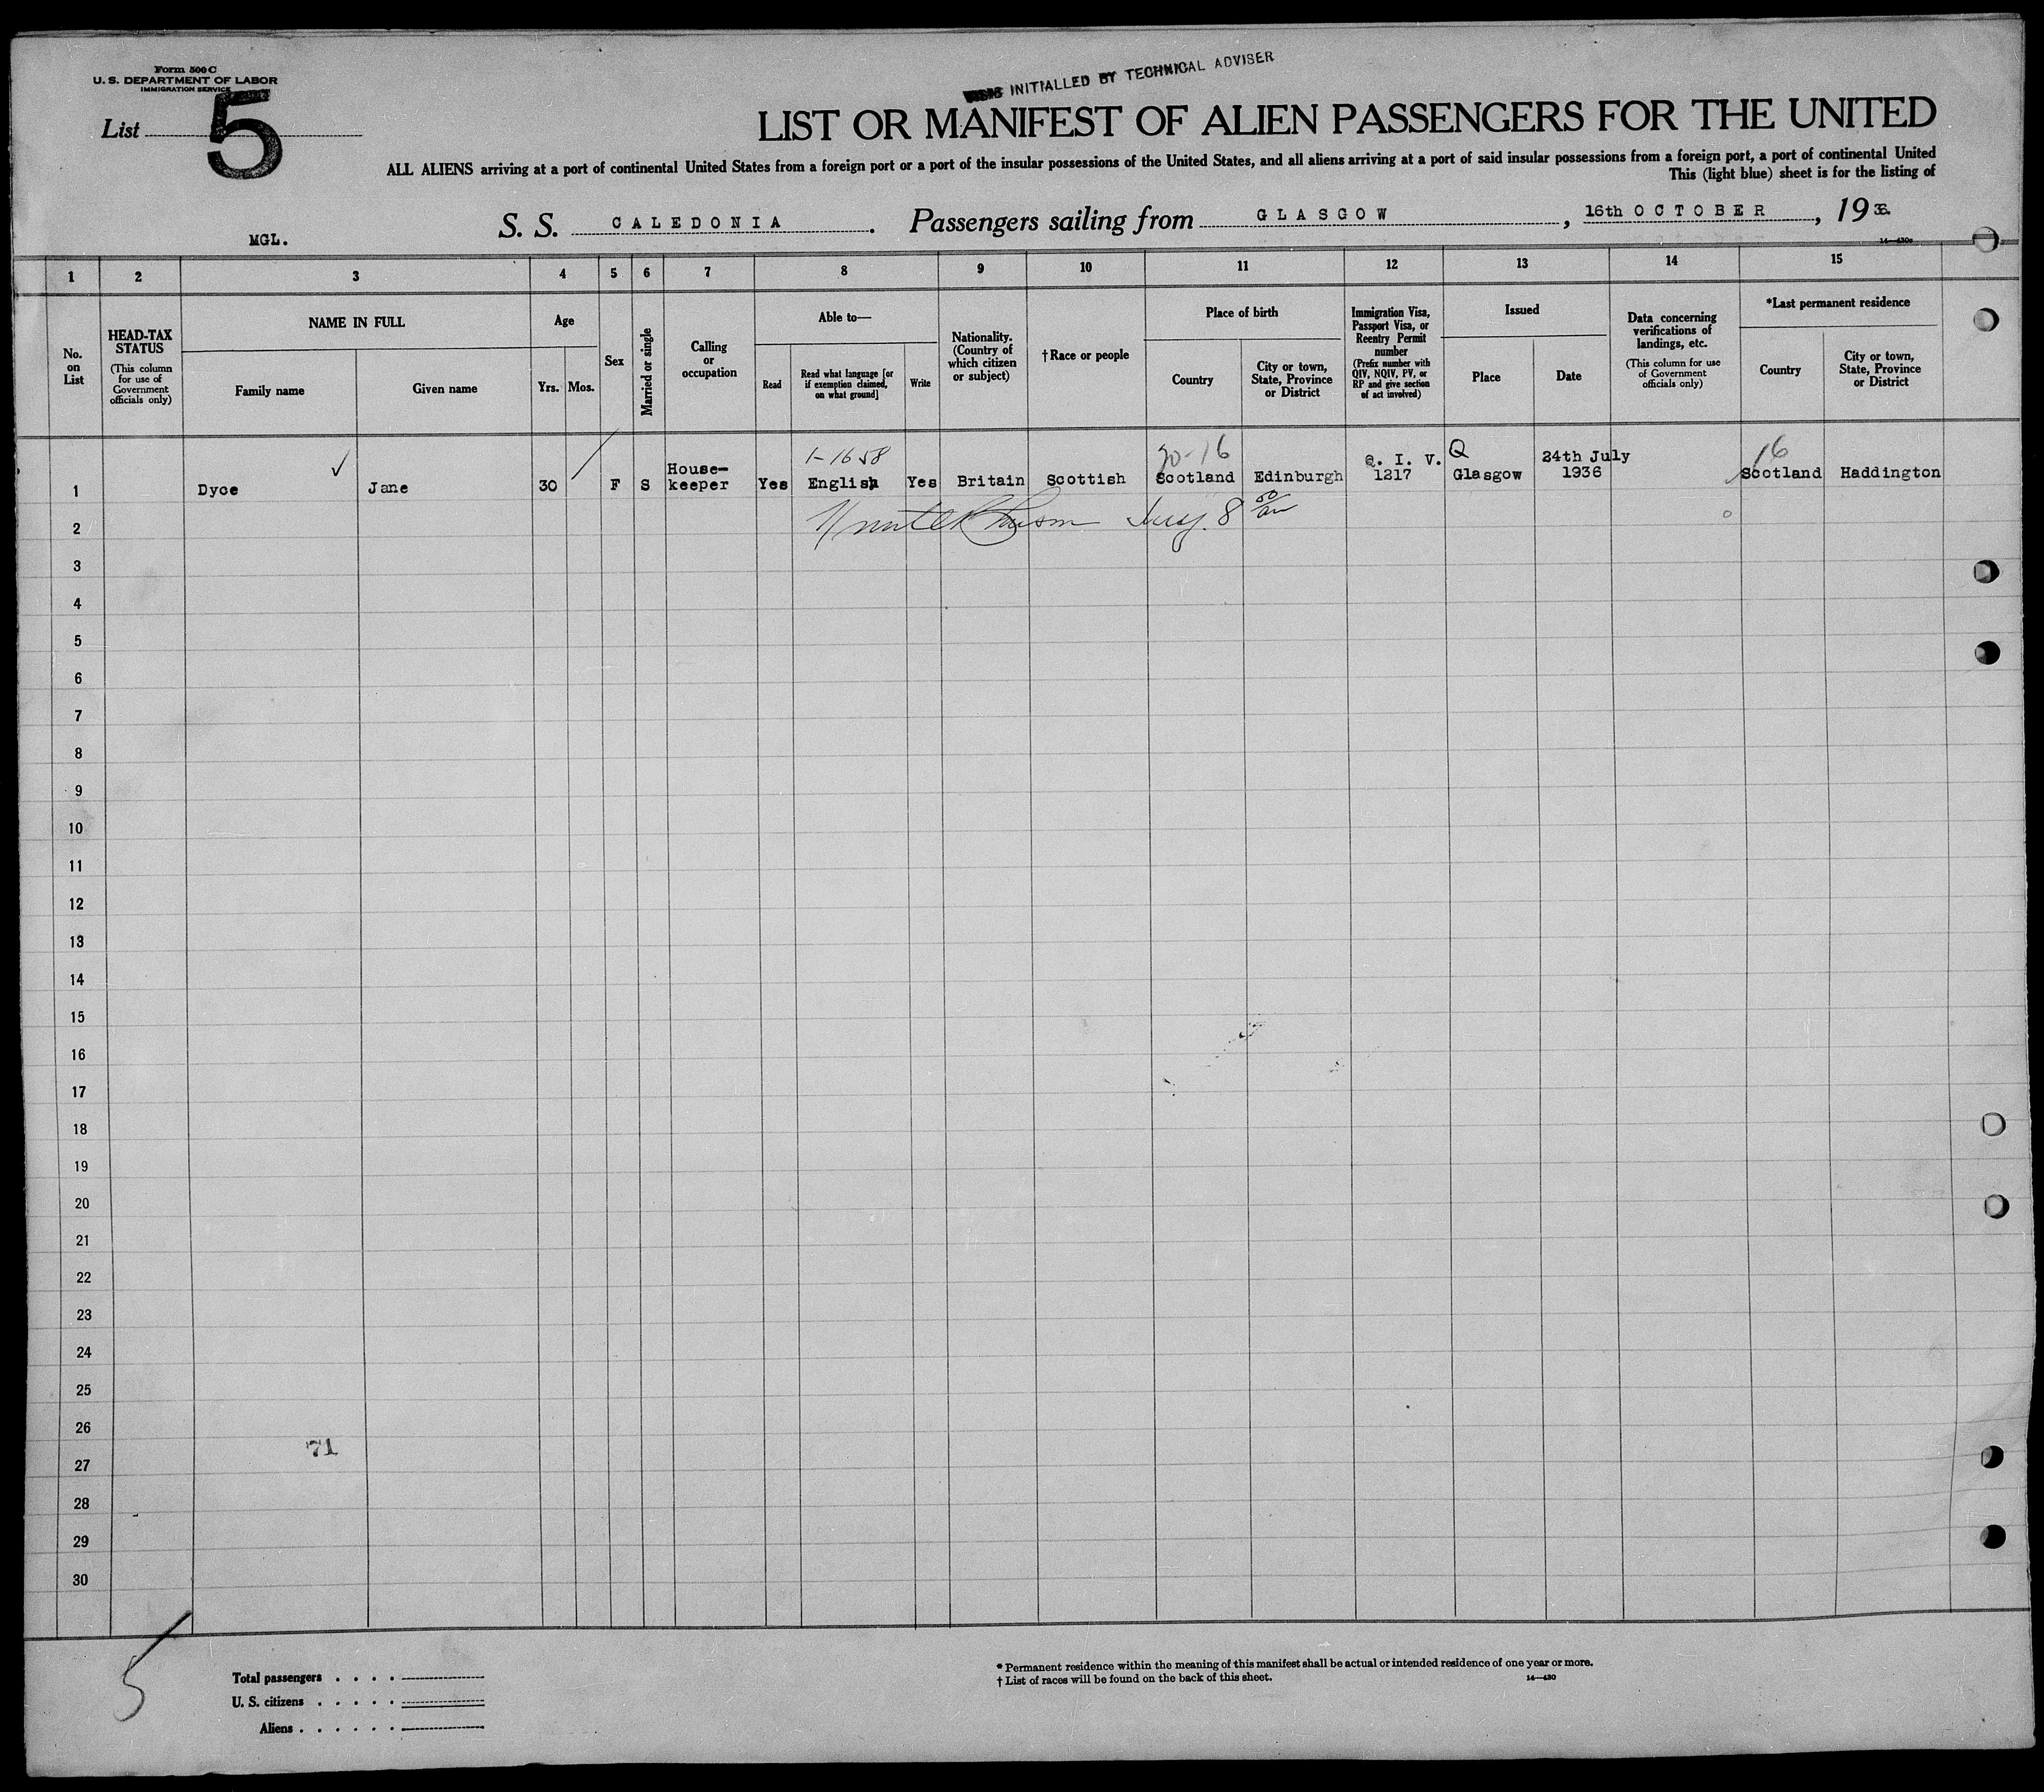 Form 500 C
U. S. DEPARTMENT OF LABOR
IMMIGRATION SERVICE
List 5
INITIALLED BY TECHNICAL ADVISER
LIST OR MANIFEST OF ALIEN PASSENGERS FOR THE UNITED
ALL ALIENS arriving at a port of continental United States from a foreign port or a port of the insular possessions of the United States, and all aliens arriving at a port of said insular possessions from a foreign port, a port of continental United
This (light blue) sheet is for the listing of
MGL.
S. S. CALEDONIA. Passengers sailing from GLASGOW, 16th OCTOBER, 1936.
14—430c
1 2 3 4 5 6 7 8 9 10 11 12 13 14 15
No. on List
HEAD-TAX STATUS
(This column for use of Government officials only)
NAME IN FULL
Family name
Given name
Age
Yrs.
Mos.
Sex
Married or single
Calling or occupation
Able to—
Read
Read what language [or if exemption claimed, on what ground]
Write
Nationality. (Country of which citizen or subject)
†Race or people
Place of birth
Country
City or town, State, Province or District
Immigration Visa, Passport Visa, or Reentry Permit number
(Prefix number with QIV, NQIV, PV, or RP and give section of act involved)
Issued
Place
Date
Data concerning verifications of landings, etc.
(This column for use of Government officials only)
*Last permanent residence
Country
City or town, State, Province or District
1-1658 20-16 Q 16
1 Dyce ✓ Jane 30 F S House-keeper Yes English Yes Britain Scottish Scotland Edinburgh Q. I. V. 1217 Glasgow 24th July 1936 Scotland Haddington
2
3
4
5
6
7
8
9
10
11
12
13
14
15
16
17
18
19
20
21
22
23
24
25
26
71
27
28
29
30
5
Total passengers . . . .
U. S. citizens . . . . .
Aliens . . . . . .
* Permanent residence within the meaning of this manifest shall be actual or intended residence of one year or more.
† List of races will be found on the back of this sheet.
14—430